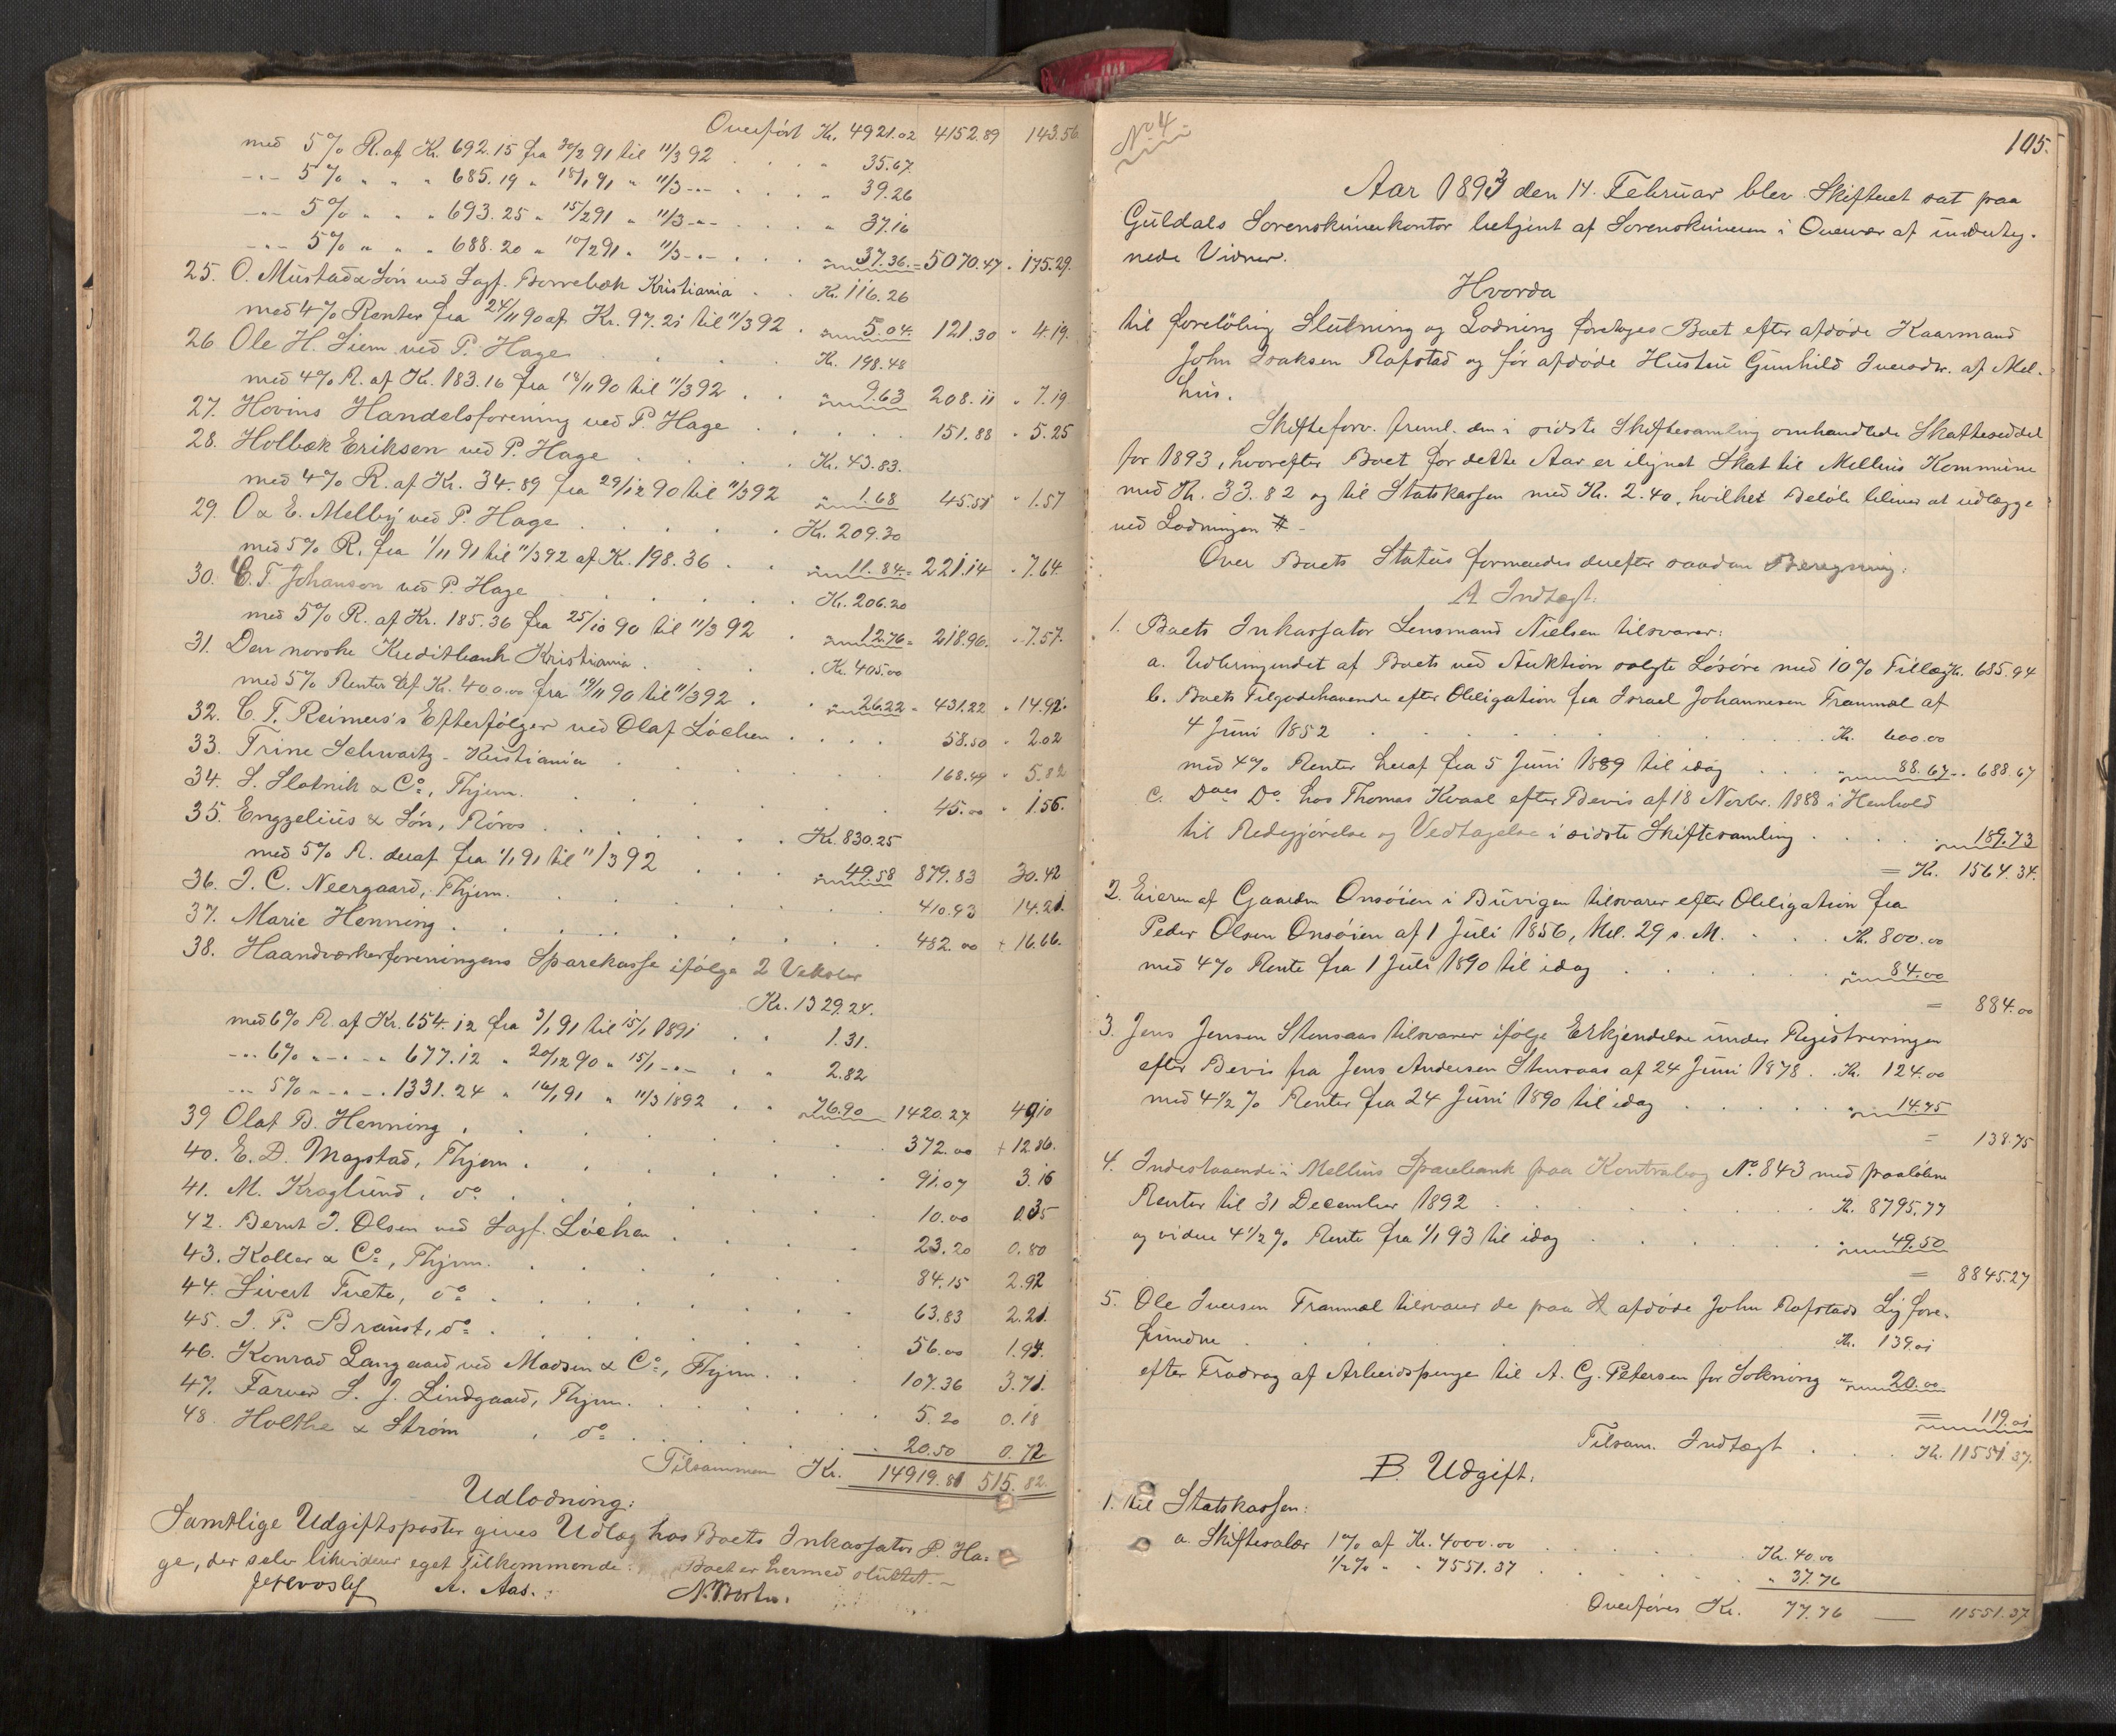 Overført Kr. 4921.02 4152.89 143.56
med 5% R. af Kr. 692.15 fra 30/2 91 til 11/3 92 . . . „ 35.67
-„- 5% „ „ „ 685.19 „ 18/1 91 „ 11/3 -„- . . . „ 39.26
-„- 5% „ „ „ 693.25 „ 15/2 91 „ 11/3 -„- . . . „ 37.16
-„- 5% „ „ „ 688.20 „ 10/2 91 „ 11/3 -„- . . . „ 37.36 = 5070.47 „ 175.29.
25. O. Mustad & Søn ved Sagf. Borrebæk Kristiania . . Kr. 116.26
med 4% Renter fra 24/11 90 af Kr. 97.21 til 11/3 92 . „ 5.04. 121.30 „ 4.19.
26 Ole H. Siem ved P. Hage . . . Kr. 198.48
med 4% R. af Kr. 183.16 fra 18/11 90 til 11/3 92 . . „ 9.63 208.11 „ 7.19
27. Hovins Handelsforening ved P. Hage . . . . . 151.88 „ 5.25
28. Holbæk Eriksen ved P. Hage . . . . Kr. 43.83.
med 4% R. af Kr. 34.89 fra 29/12 90 til 11/3 92 „ 1.68 45.51 „ 1.57
29. O & E. Melby ved P. Hage . . . . . Kr. 209.30
med 5% R. fra 1/11 91 til 11/3 92 af K. 198.36 . . „ 11.84 = 221.14 „ 7.64.
30. C. T. Johanson ved P. Hage . . . . . Kr. 206.20
med 5% R. af Kr. 185.36 fra 25/10 90 til 11/3 92 . „ 12.76 = 218.96. „ 7.57.
31. Den norske Kreditbank Kristiania . . . . Kr. 405.00
med 5% Renter af Kr. 400.00 fra 19/11 90 til 11/3 92 . . „ 26.22 = 431.22 „ 14.92.
32. C. T. Reimers's Efterfølger ved Olaf Löchen . . . . 58.50 „ 2.02
33. Trine Schwartz - Kristiania . . . . . 168.49 „ 5.82
34. S. Slatnik & Co., Thjem. . . . . . . 45.00 „ 1.56.
35. Engzelius & Søn, Røros . . . . . . Kr. 830.25
med 5% R. deraf fra 1/1 91 til 11/3 92 . . . „ 49.58 879.83 30.42
36. J. C. Neergaard, Thjem. . . . . . . 410.93 14.21.
37. Marie Henning . . . . . . . . 482.00 + 16.66.
38. Haandværkerforeningens Sparekasse ifølge 2 Veksler
Kr. 1329.24.
med 6% R. af Kr. 654.12 fra 3/1 91 til 15/1 1891 . . 1.31.
-„- 6% „ -„- „ 677.12 „ 20/12 90 „ 15/1 -„- . . 2.82
-„- 5% „ -„- „ 1331.24 „ 16/1 91 „ 11/3 1892 . . „ 76.90 1420.27 49.10
39 Olaf B. Henning . . . . . . . 372.00 + 12.86.
40. E. D. Mogstad, Thjem . . . . . . . 91.07 3.16
41. M. Kroglund, do . . . . . . . 10.00 0.35
42. Bernt J. Olsen ved Sagf. Löchen . . . . 23.20 0.80
43. Koller & Co., Thjem. . . . . . . 84.15 2.92
44. Sivert Tvete, do . . . . . . . 63.83 2.21.
45. J. P. Brønst, do . . . . . . . 56.00 1.94.
46. Konrad Langaard ved Madsen & Co., Thjem. . . . 107.36 3.71.
47. Farver S. J. Lindgaard, Thjem. . . . . . 5.20 0.18
48. Holthe & Strøm . do . . . . . . 20.50 0.72
Tilsammen Kr. 14919.81 515.82
Udlodning:
Samtlige Udgiftsposter gives Udlæg hos Boets Inkassator P. Ha-
ge, der selv likviderer eget Tilkommende. Boet er hermed sluttet. -
A. Aas.
No 4
105.
Aar 1893 den 14. Februar blev Skifteret sat paa
Guldals Sorenskriverkontor betjent af Sorenskriveren i Overvær af underteg-
nede Vidner.
Hvorda
til foreløbig Slutning og Lodning foretoges Boet efter afdøde Kaarmand
John Isaksen Rofstad og før afdøde Hustru Gunhild Iversdr. af Mel-
hus.
Skifteforv. freml. den i sidste Skiftesamling omhandlede Skatteseddel
for 1893, hvorefter Boet for dette Aar er ilignet Skat til Melhus Kommune
med Kr. 33.82 og til Statskassen med Kr. 2.40, hvilket Beløb bliver at udlægge
ved Lodningen -
Over Boets Status formeredes derefter saadan Beregning:
A Indtægt:
1. Boets Inkassator Lensmand Nielsen tilsvarer:
a. Udbringendet af Boets ved Auktion solgte Løsøre med 10% Tillæg Kr. 685.94
b. Boets Tilgodehavende efter Obligation fra Israel Johannesen Tranmæl af
4 Juni 1852 . . . . . . . . Kr. 600.00
med 4% Renter heraf fra 5 Juni 1889 til idag . . . „ 88.67 - „ 688.67
c. Do Do hos Thomas Kvaal efter Bevis af 18 Novbr. 1888 i Henhold
til Redegjørelse og Vedtagelse i sidste Skiftesamling . . . . „ 189.73
= Kr. 1564.34.
2. Eieren af Gaarden Onsøien i Buvigen tilsvarer efter Obligation fra
Peder Olsen Onsøien af 1 Juli 1856, Mel. 29 s. M. . . . Kr. 800.00
med 4% Rente fra 1 Juli 1890 til idag . . . . . „ 84.00
= 884.00
3. Jens Jensen Stensaas tilsvarer ifølge Erkjendelse under Registreringen
efter Bevis fra Jens Andersen Stensaas af 24 Juni 1878 . . Kr. 124.00
med 4 1/2% Renter fra 24 Juni 1890 til idag . . . . . „ 14.75
= 138.75
4. Indestaaende i Melhus Sparebank paa Kontrabog No. 843 med paaløbne
Renter til 31 December 1892 . . . . . . Kr. 8795.77
og videre 4 1/2% Rente fra 1/1 93 til idag . . . . . „ 49.50
= 8845.27
5. Ole Iversen Tranmæl tilsvarer de paa afdøde John Rofstads Lig fore-
fundne . . . . . . . . . . Kr. 139.01
efter Fradrag af Arbeidspenge til A. G. Petersen for Sokning „ 20.00
= 119.01
Tilsam. Indtægt . . . Kr. 11551.37.
B. Udgift:
1. til Statskassen:
a. Skiftesalær 1% af Kr. 4000.00 . . . . . Kr. 40.00
1/2% „ „ 7551.37 . . . . . „ 37.76
Overføres Kr. 77.76 — 11551.37